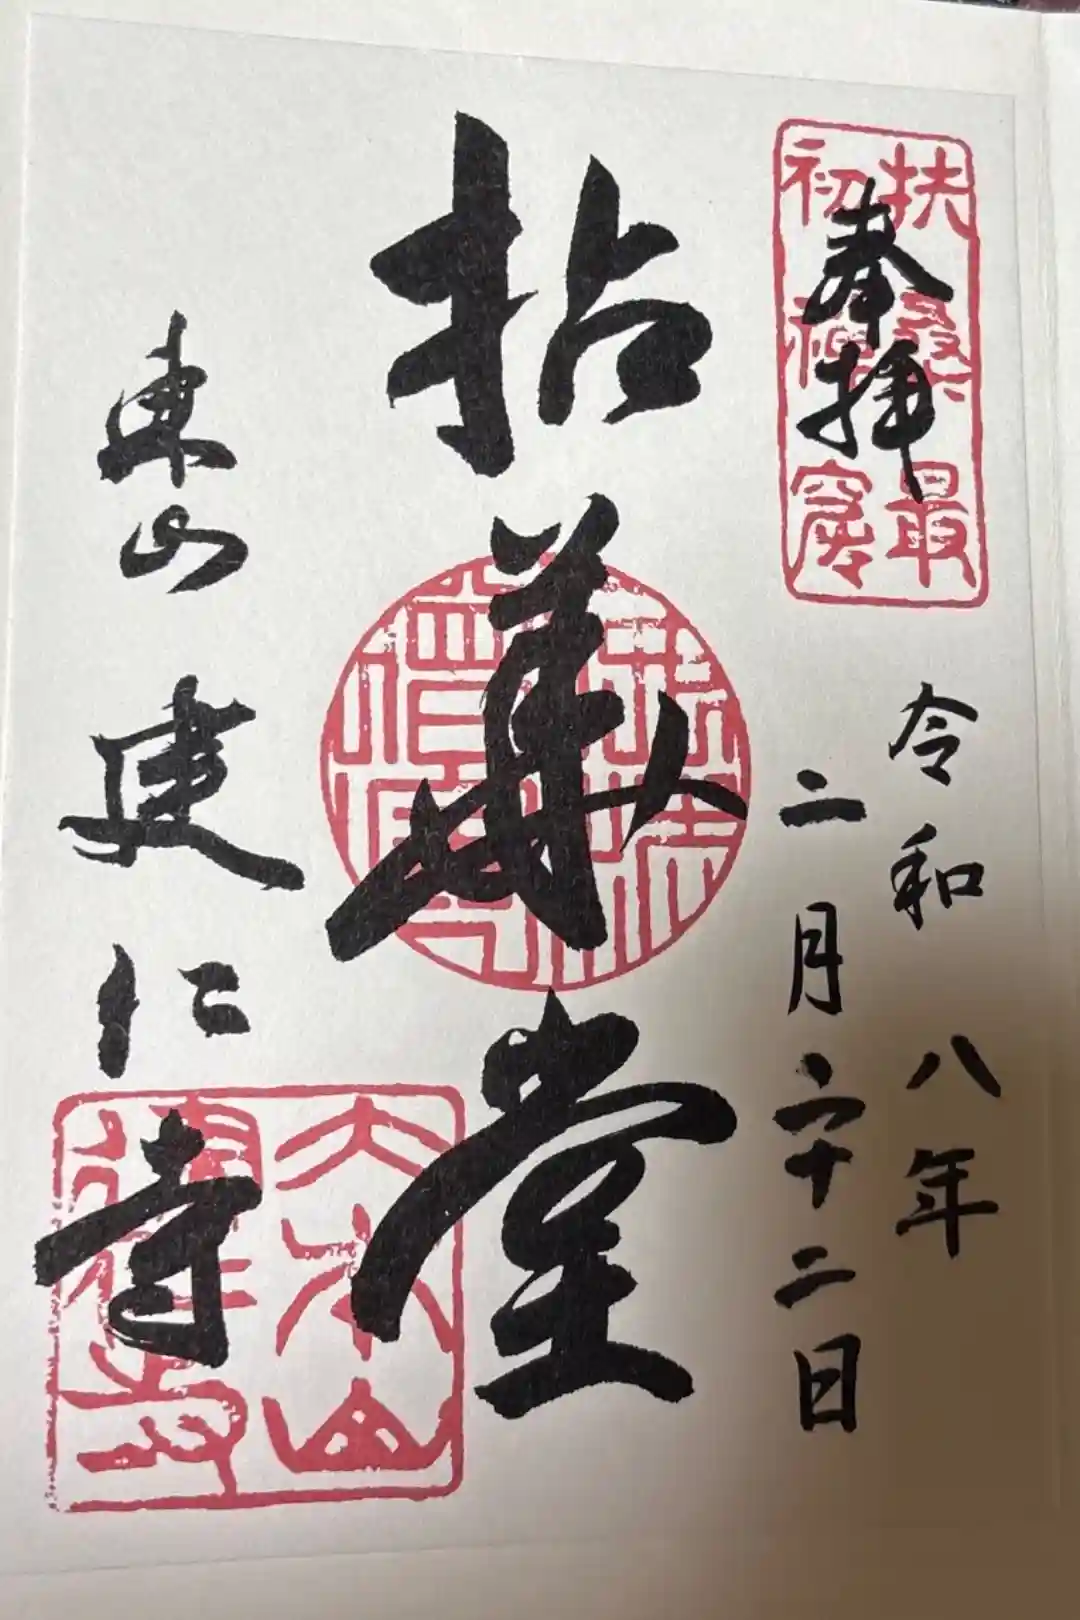 扶桑最
初禅窟
奉拝
令和八年
二月二十二日
拈華堂
東山建仁寺
大本山
建仁寺